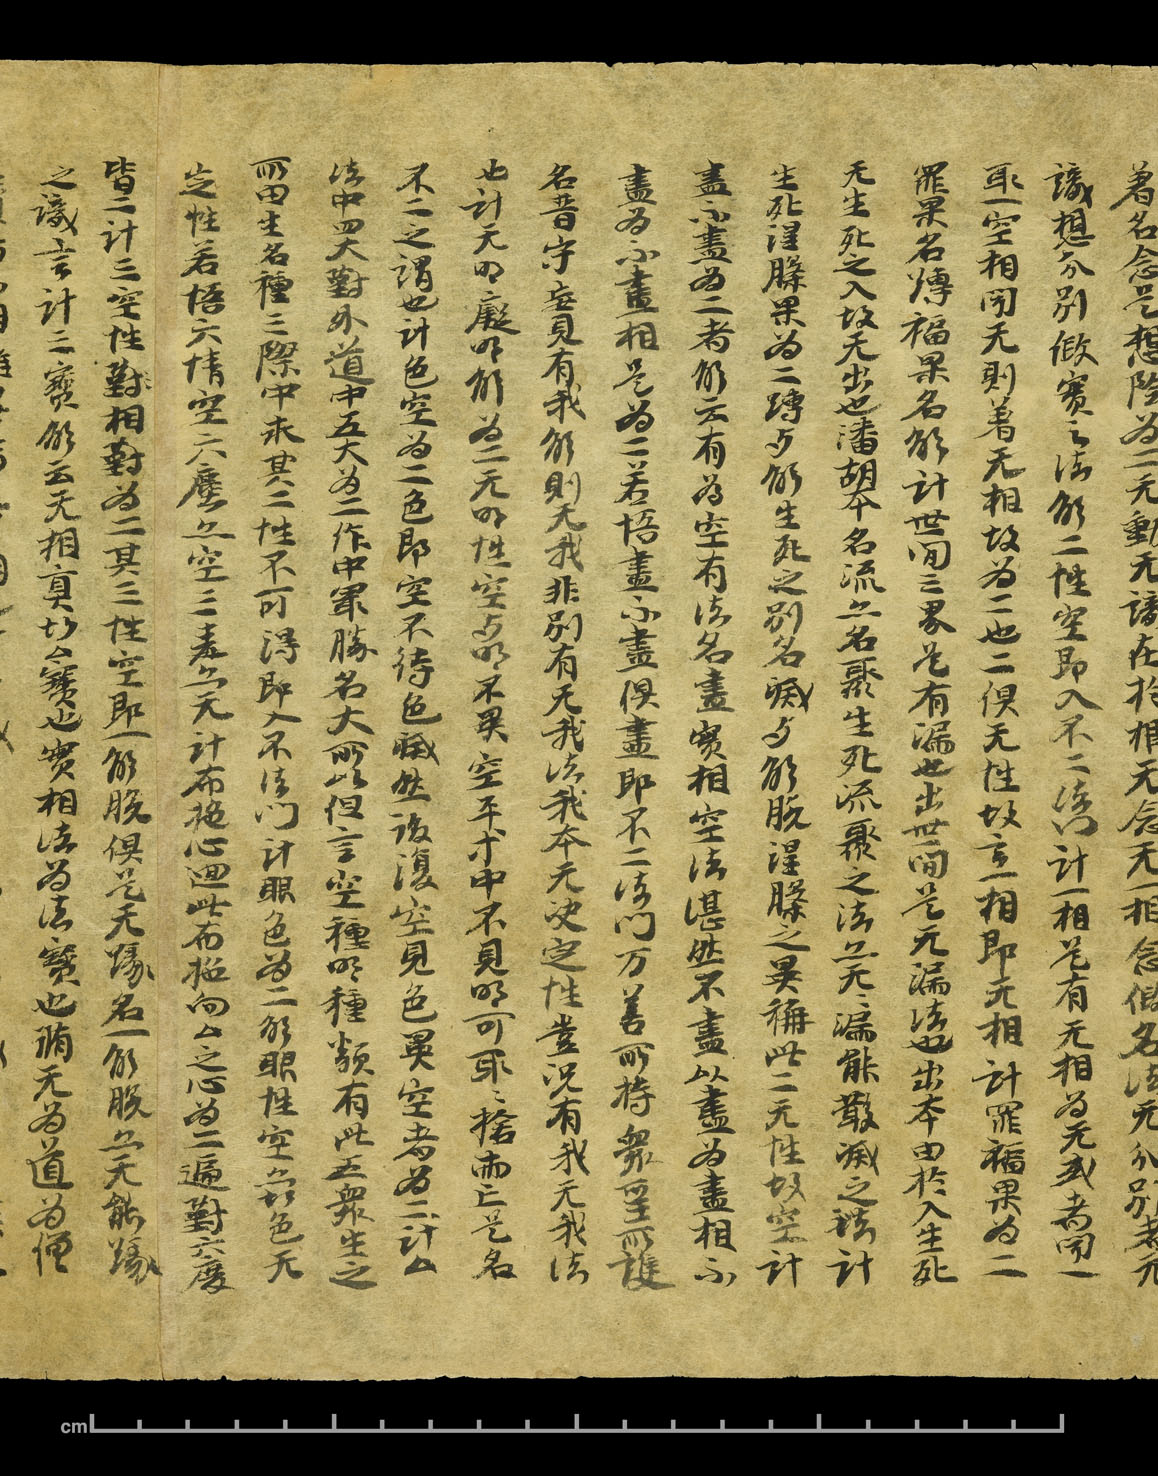 著名念是想陰為二无動无識在於想无念无一相念假名法无分別者无
識想分別假實之法解二性空即入不二法門計一相是有无相為无或者聞一
取一空相聞无則著无相故為二也二俱无性故言一相即无相計罪福果為二
罪果名縛福果名解計世間三界是有漏也出世間是无漏法也出本由於入生死
无生死之入故无出也潘胡本名流亦名聚生死流聚之法亦无无漏能散滅之法計
生死涅槃果為二縛與解生死之別名滅與解脫涅槃之異稱此二无性故空計
盡不盡為二者解云有為空有法名盡實相空法湛然不盡以盡為盡相不
盡為不盡相是為二若悟盡不盡俱盡即不二法門万善所持眾聖所護
名昔守妄見有我解則无我非別有无我法我本无決定性豈況有我无我法
也計无明癡明解為二无明性空與明不異空平等中不見明可取取捨兩亡是名
不二之謂也計色空為二色即空不待色滅然後復空見色異空者為二計厶
法中四大對外道中五大為二作中軍勝名大所以但言空種明種類有此五眾生之
所由生名種三際中求其二性不可得即入不法門計眼色為二解眼性空亦於色无
定性若悟六情空六塵亦空三毒亦无計布施心迴此布施向厶之心為二遍對六度
皆二計三空性對相對為二其三性空即一解脫俱是无緣名一解脫亦无能緣
之識言計三寶解云无相真故厶寶也實相法為法寶也脩无為道為僧